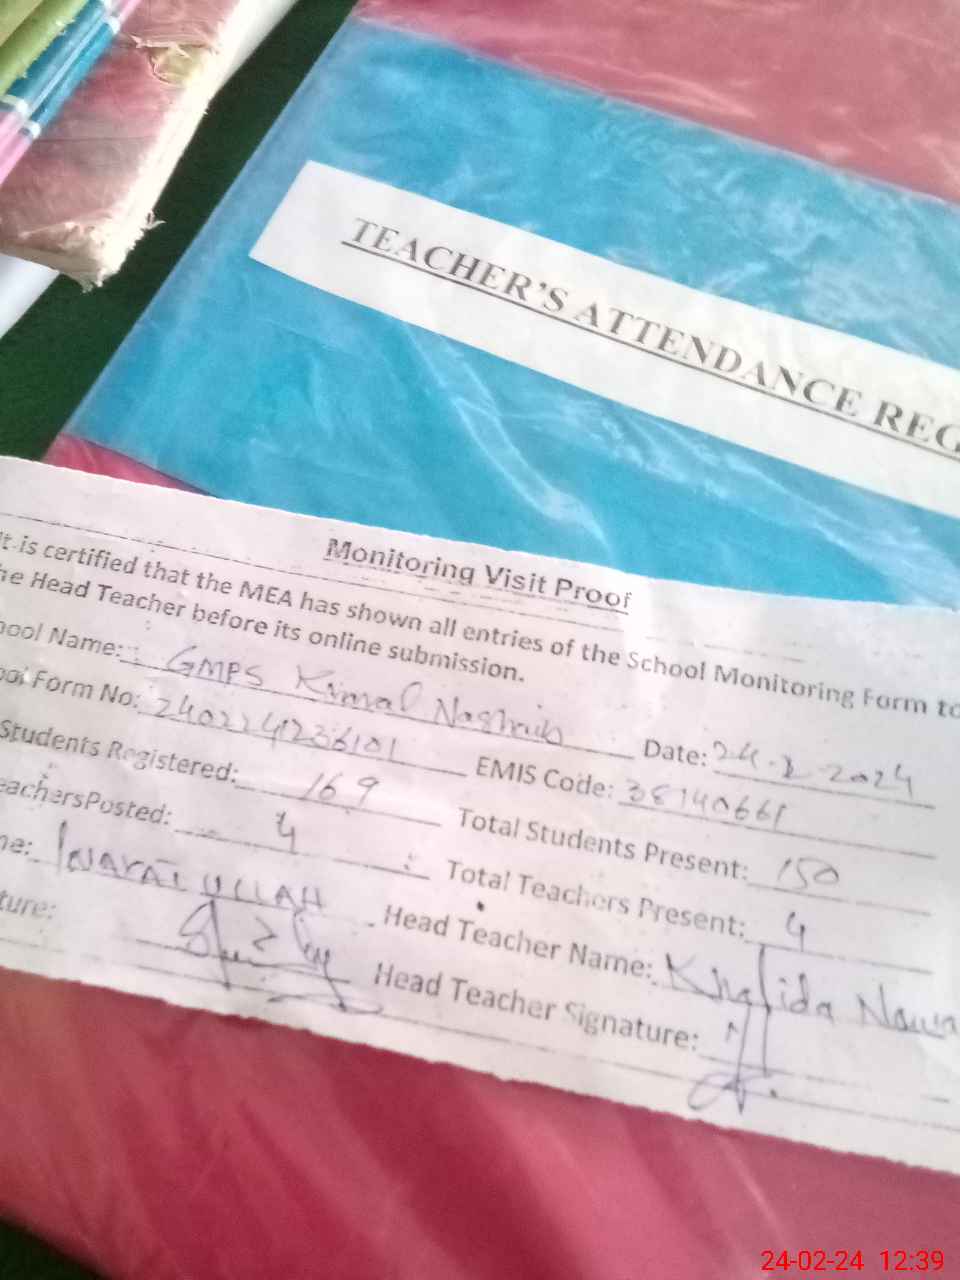 TEACHER'S ATTENDANCE REG
Monitoring Visit Proof
It is certified that the MEA has shown all entries of the School Monitoring Form to
he Head Teacher before its online submission.
ool Name: GMPS Kamal Date: 24-2-2024
ool Form No: 2402241236101 EMIS Code: 38140661
Students Registered: 169 Total Students Present: 150
eachersPosted: 4 Total Teachers Present: 4
ne: INAYAT ULLAH Head Teacher Name: Khalida
ture: Head Teacher Signature:
24-02-24 12:39